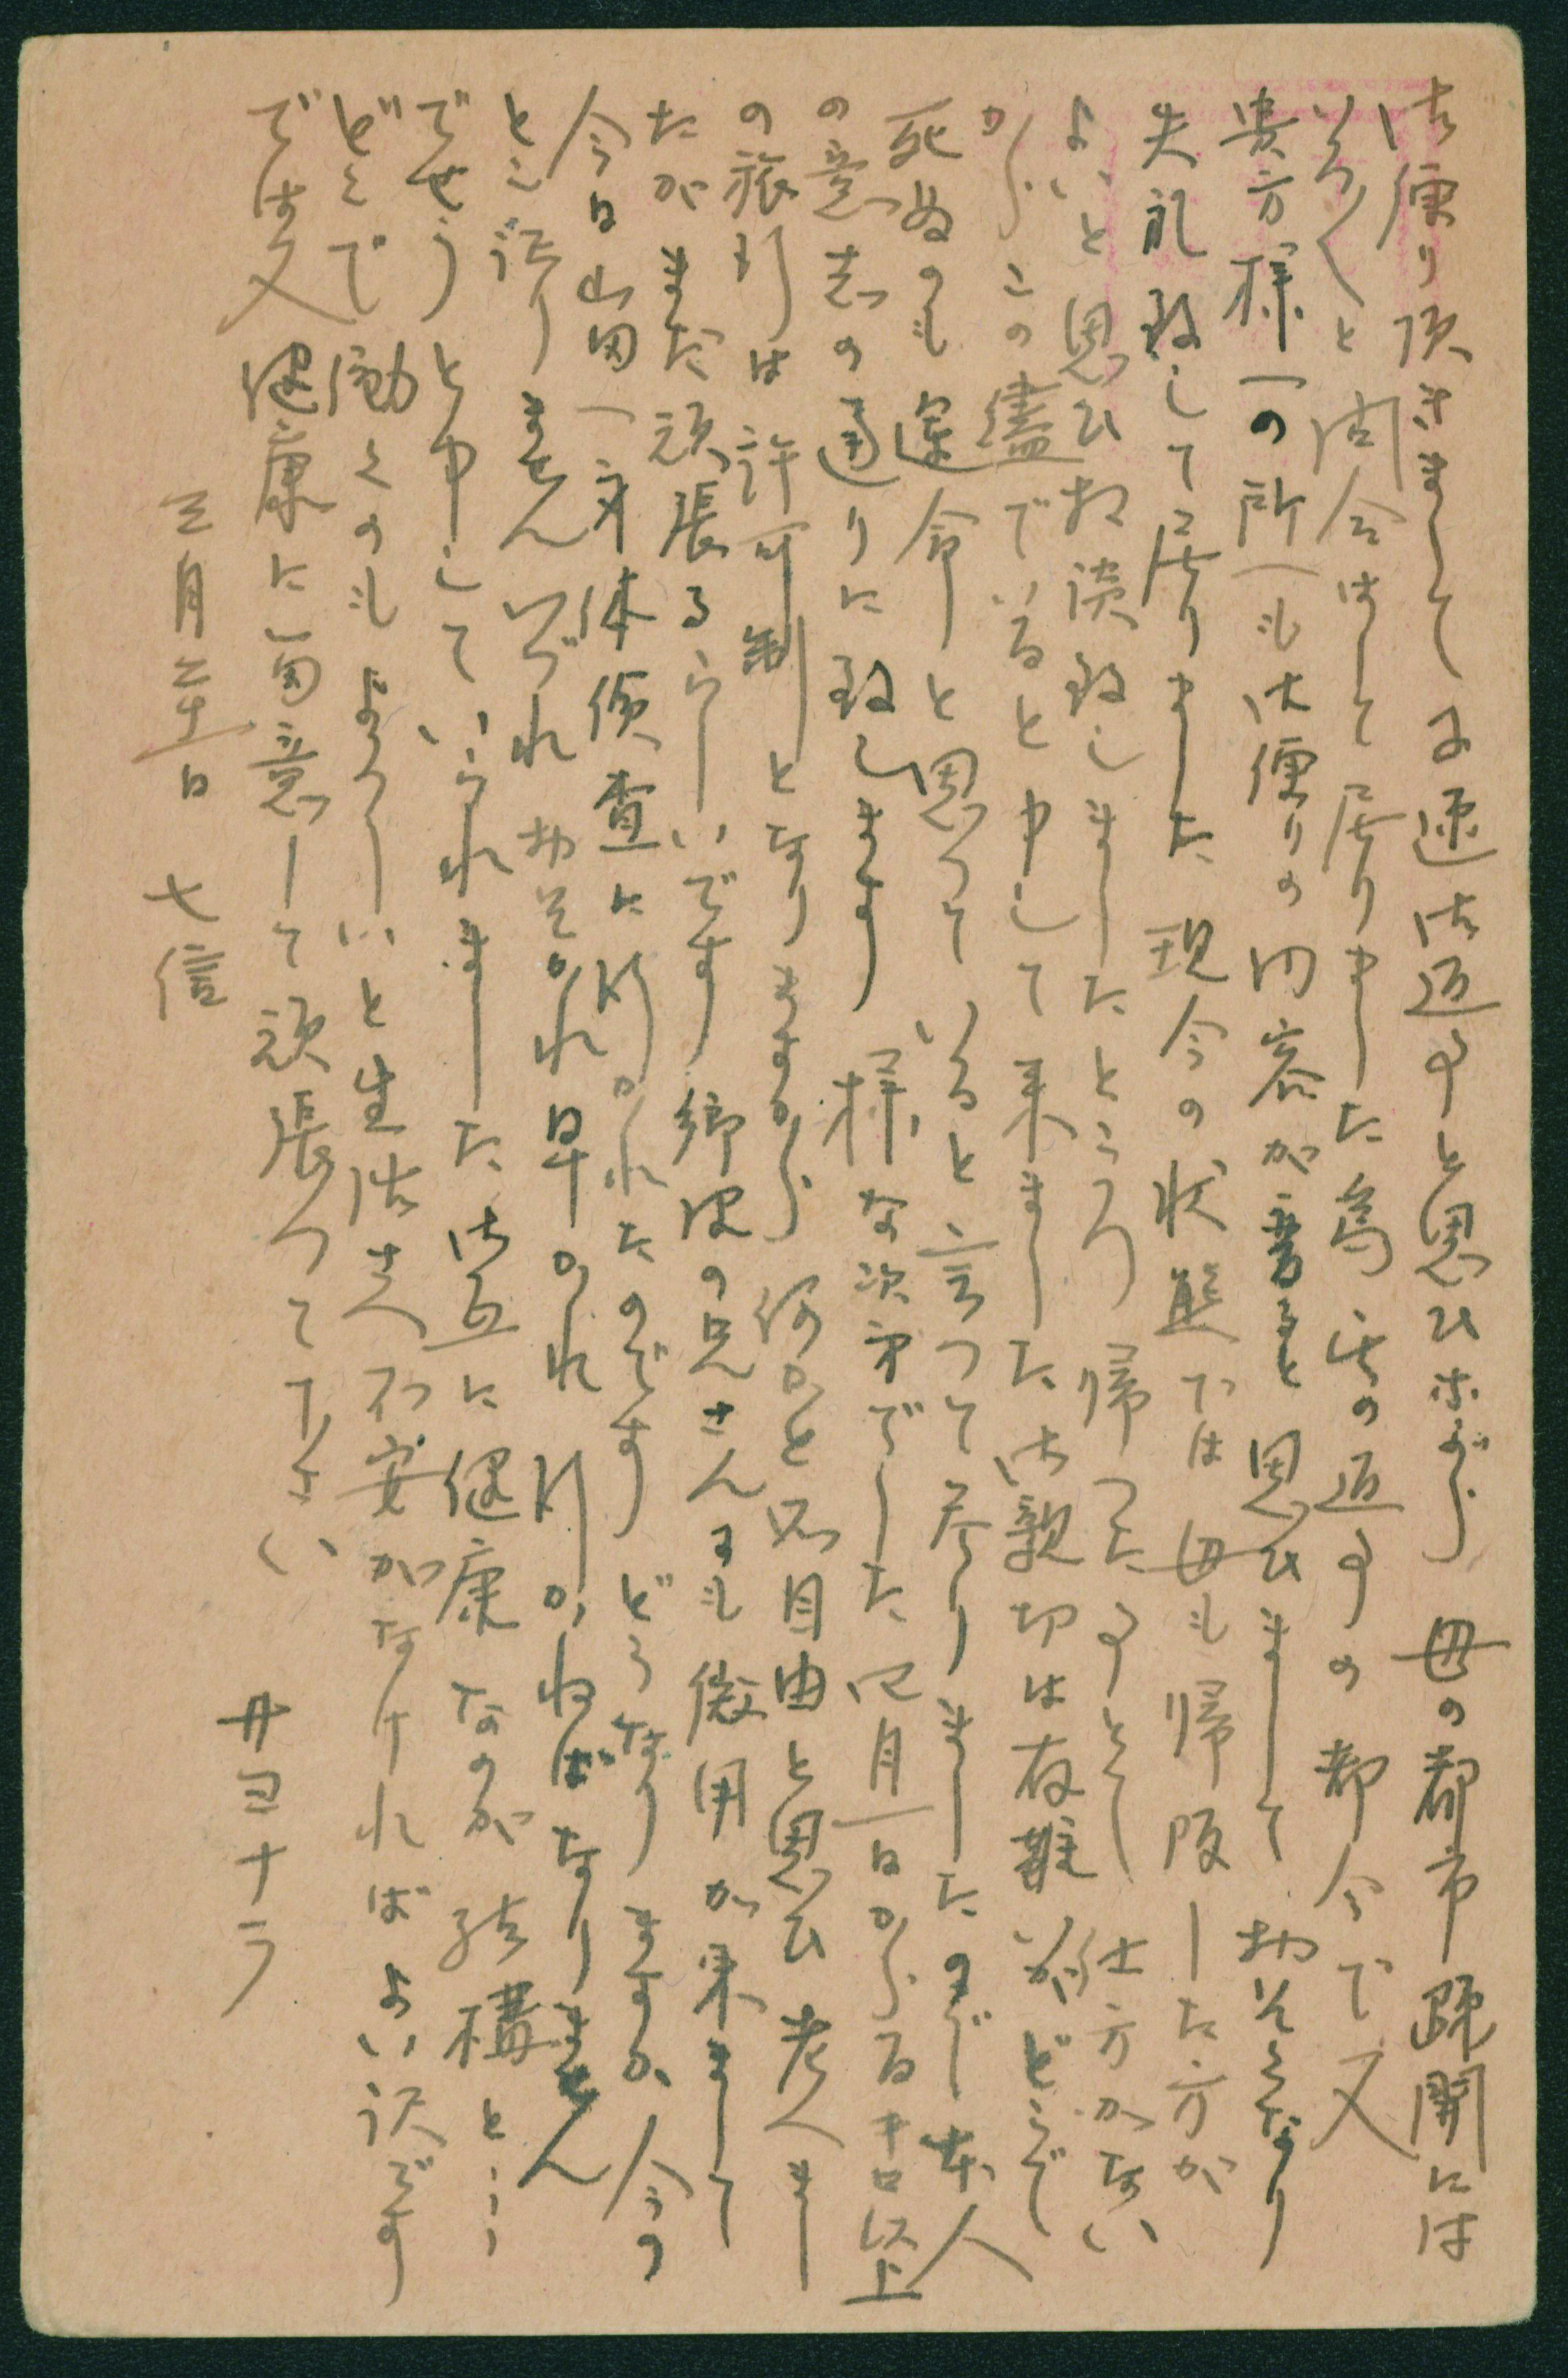 御便り頂きまして早速御返事と思ひ乍ら 母の都市疎開には
いろ〳〵と問合はして居りました為 此の返事の都合で又
貴方様一の所一も御便りの内容が書ると思ひまして おそくなり
失礼致して居りました 現今の状態では 母も帰阪した方が
よいと思ひ相談致しましたところ 帰つた事とて 仕方がない
からこの儘でいると申して来ました 御親切は有難いがどこで
死ぬのも運命と思つていると言つて参りましたので 本人
の意志の通りに致します 様な次第でした 四月一日から百キロ以上
の旅行は許可制となりますから 何かと不自由と思ひ 考へまし
たが まだ頑張るらしいです 郷里の兄さんにも徴用が来まして
今日山田へ身体検査に行かれたのです どうなりますか 今の
ところ 訳りません いづれおそかれ早かれ 行かねばなりません
でせうと申していられました 御互に健康なのが 結構とし
どこで働くのもよろしいと生活さへ不安がなければよい訳です
では又 健康に留意して頑張つて下さい
サヨナラ
三月二十一日 七信